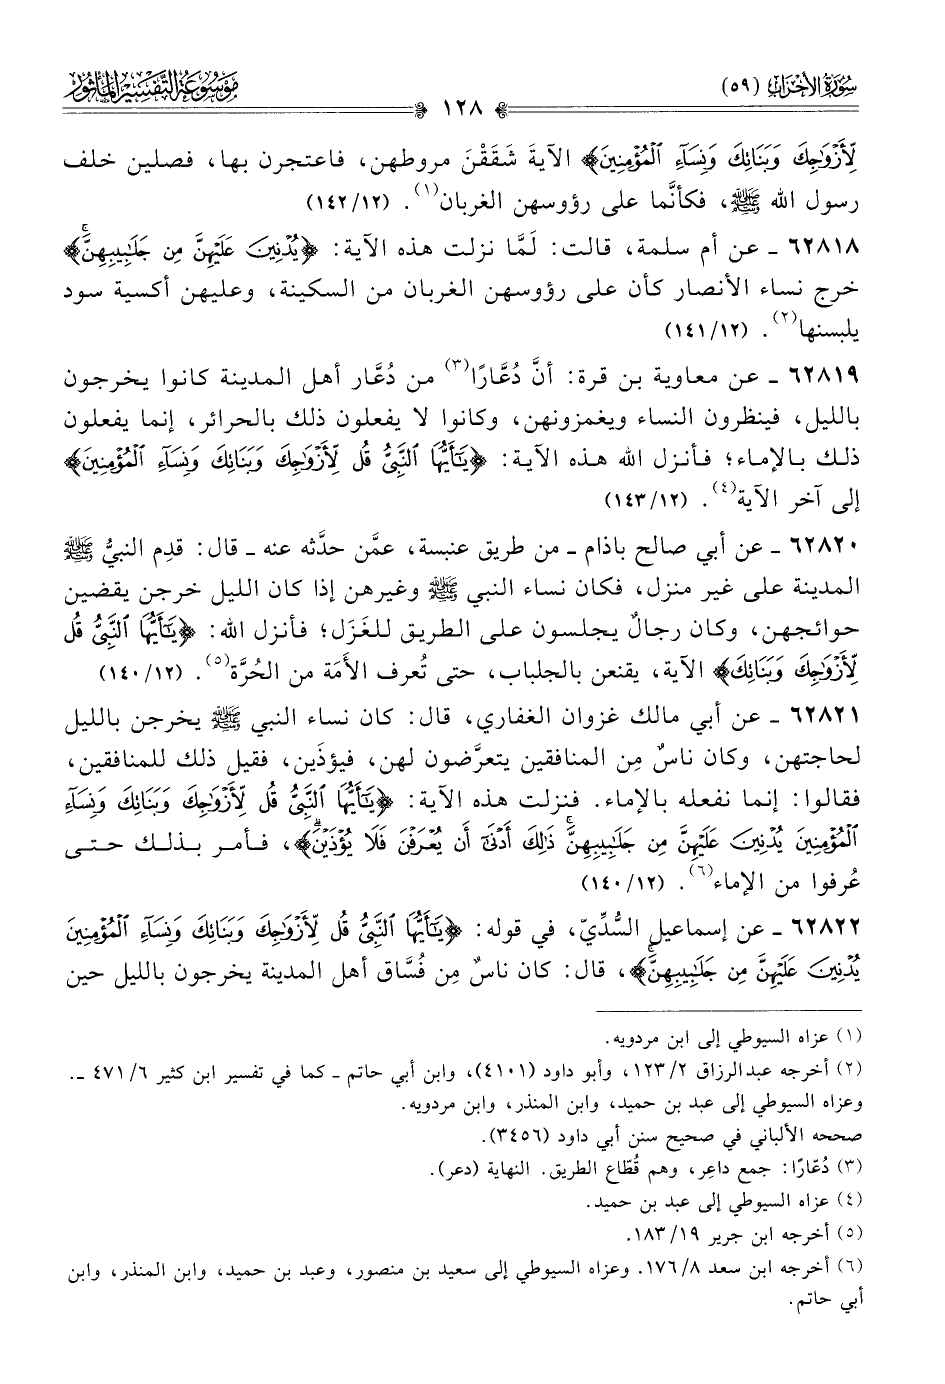 سُورَةُ الأَحْزَاب (٥٩)
مَوْسُوعَةُ التَّفْسِيرِ المَأْثُور
١٢٨
لِّأَزْوَٰجِكَ وَبَنَاتِكَ وَنِسَآءِ ٱلْمُؤْمِنِينَ﴾ الآيةَ شَقَقْنَ مروطهن، فاعتجرن بها، فصلين خلف
رسول الله ﷺ، فكأنَّما على رؤوسهن الغربان(١). (١٤٢/١٢)
٦٢٨١٨ ـ عن أم سلمة، قالت: لَمَّا نزلت هذه الآية: ﴿يُدْنِينَ عَلَيْهِنَّ مِن جَلَٰبِيبِهِنَّۚ﴾
خرج نساء الأنصار كأن على رؤوسهن الغربان من السكينة، وعليهن أكسية سود
يلبسنها(٢). (١٤١/١٢)
٦٢٨١٩ ـ عن معاوية بن قرة: أنَّ دُعَّارًا(٣) من دُعَّار أهل المدينة كانوا يخرجون
بالليل، فينظرون النساء ويغمزونهن، وكانوا لا يفعلون ذلك بالحرائر، إنما يفعلون
ذلك بالإماء؛ فأنزل الله هذه الآية: ﴿يَٰٓأَيُّهَا ٱلنَّبِىُّ قُل لِّأَزْوَٰجِكَ وَبَنَاتِكَ وَنِسَآءِ ٱلْمُؤْمِنِينَ﴾
إلى آخر الآية(٤). (١٤٣/١٢)
٦٢٨٢٠ ـ عن أبي صالح باذام ـ من طريق عنبسة، عمَّن حدَّثه عنه ـ قال: قدِم النبيُّ ﷺ
المدينة على غير منزل، فكان نساء النبي ﷺ وغيرهن إذا كان الليل خرجن يقضين
حوائجهن، وكان رجالٌ يجلسون على الطريق للغَزَل؛ فأنزل الله: ﴿يَٰٓأَيُّهَا ٱلنَّبِىُّ قُل
لِّأَزْوَٰجِكَ وَبَنَاتِكَ﴾ الآية، يقنعن بالجلباب، حتى تُعرف الأَمَة من الحُرَّة(٥). (١٤٠/١٢)
٦٢٨٢١ ـ عن أبي مالك غزوان الغفاري، قال: كان نساء النبي ﷺ يخرجن بالليل
لحاجتهن، وكان ناسٌ مِن المنافقين يتعرَّضون لهن، فيؤذَين، فقيل ذلك للمنافقين،
فقالوا: إنما نفعله بالإماء. فنزلت هذه الآية: ﴿يَٰٓأَيُّهَا ٱلنَّبِىُّ قُل لِّأَزْوَٰجِكَ وَبَنَاتِكَ وَنِسَآءِ
ٱلْمُؤْمِنِينَ يُدْنِينَ عَلَيْهِنَّ مِن جَلَٰبِيبِهِنَّۚ ذَٰلِكَ أَدْنَىٰٓ أَن يُعْرَفْنَ فَلَا يُؤْذَيْنَۗ﴾، فأمر بذلك حتى
عُرفوا من الإماء(٦). (١٤٠/١٢)
٦٢٨٢٢ ـ عن إسماعيل السُّدِّيّ، في قوله: ﴿يَٰٓأَيُّهَا ٱلنَّبِىُّ قُل لِّأَزْوَٰجِكَ وَبَنَاتِكَ وَنِسَآءِ ٱلْمُؤْمِنِينَ
يُدْنِينَ عَلَيْهِنَّ مِن جَلَٰبِيبِهِنَّۚ﴾، قال: كان ناسٌ مِن فُسَّاق أهل المدينة يخرجون بالليل حين
(١) عزاه السيوطي إلى ابن مردويه.
(٢) أخرجه عبدالرزاق ١٢٣/٢، وأبو داود (٤١٠١)، وابن أبي حاتم ـ كما في تفسير ابن كثير ٤٧١/٦ ـ.
وعزاه السيوطي إلى عبد بن حميد، وابن المنذر، وابن مردويه.
صححه الألباني في صحيح سنن أبي داود (٣٤٥٦).
(٣) دُعّارًا: جمع داعِر، وهم قُطّاع الطريق. النهاية (دعر).
(٤) عزاه السيوطي إلى عبد بن حميد.
(٥) أخرجه ابن جرير ١٨٣/١٩.
(٦) أخرجه ابن سعد ١٧٦/٨. وعزاه السيوطي إلى سعيد بن منصور، وعبد بن حميد، وابن المنذر، وابن
أبي حاتم.